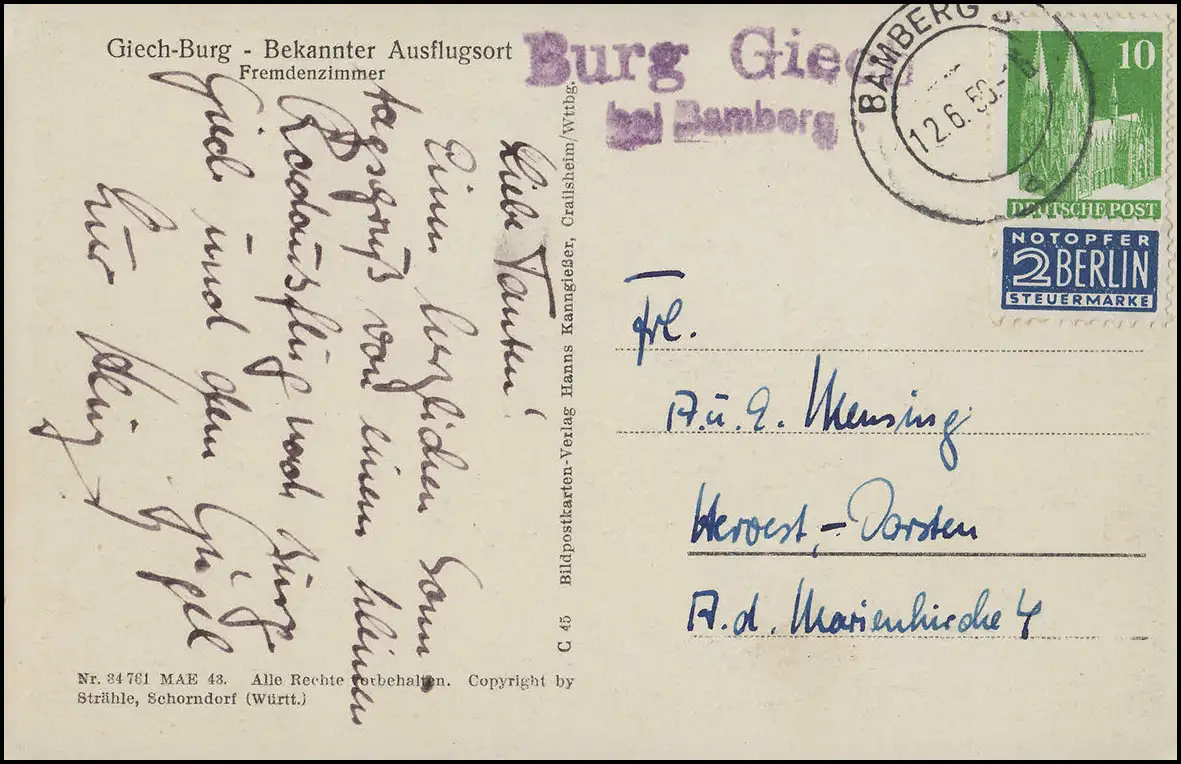 Giech-Burg - Bekannter Ausflugsort
Fremdenzimmer
Liebe Tanten!
Einen herzlichen Sonn-
tagsgruß von einem kleinen
Radausflug nach Burg
Giech und dem Gügel
Euer
Nr. 34 761 MAE 43. Alle Rechte vorbehalten. Copyright by
Strähle, Schorndorf (Württ.)
C 45 Bildpostkarten-Verlag Hanns Kanngießer, Crailsheim/Wttbg.
Burg Giech
bei Bamberg
BAMBERG
12.6.50
10
DEUTSCHE POST
NOTOPFER
2 BERLIN
STEUERMARKE
Frl.
A. u. E. Mensing
Hervest,-Dorsten
A. d. Marienkirche 4